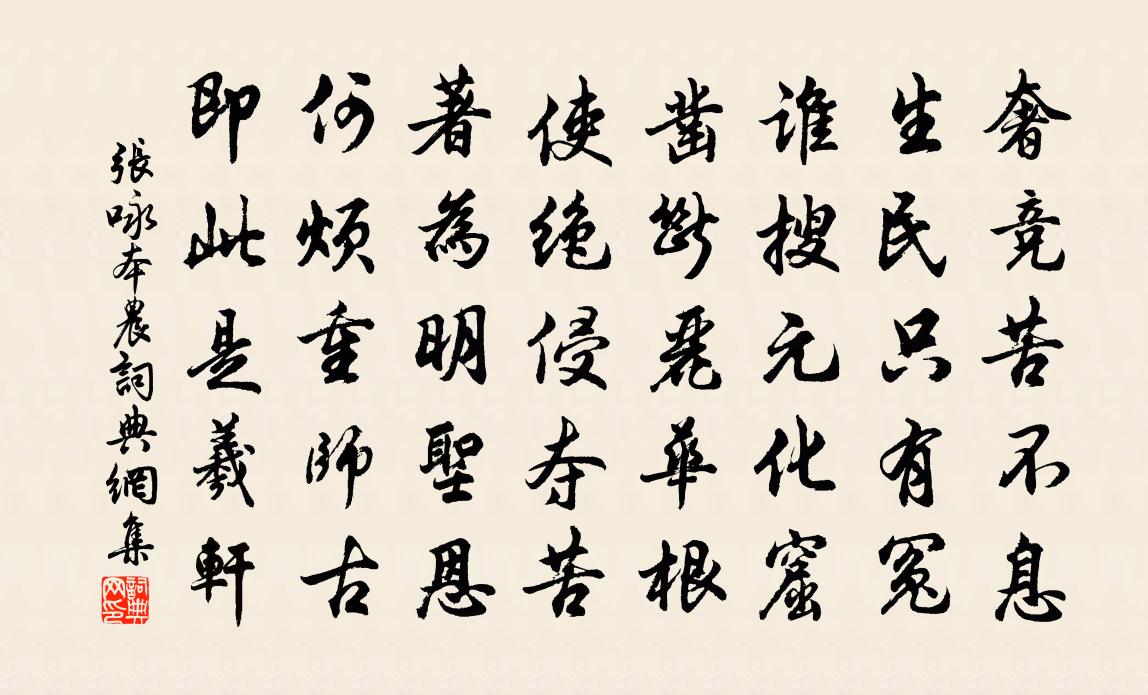 奢竞苦不息
生民只有冤
谁搜元化窟
凿斷麗華根
使绝侵夺苦
著為明聖恩
何烦重師古
即此是羲軒
張咏本農詞典網集
詞典网印